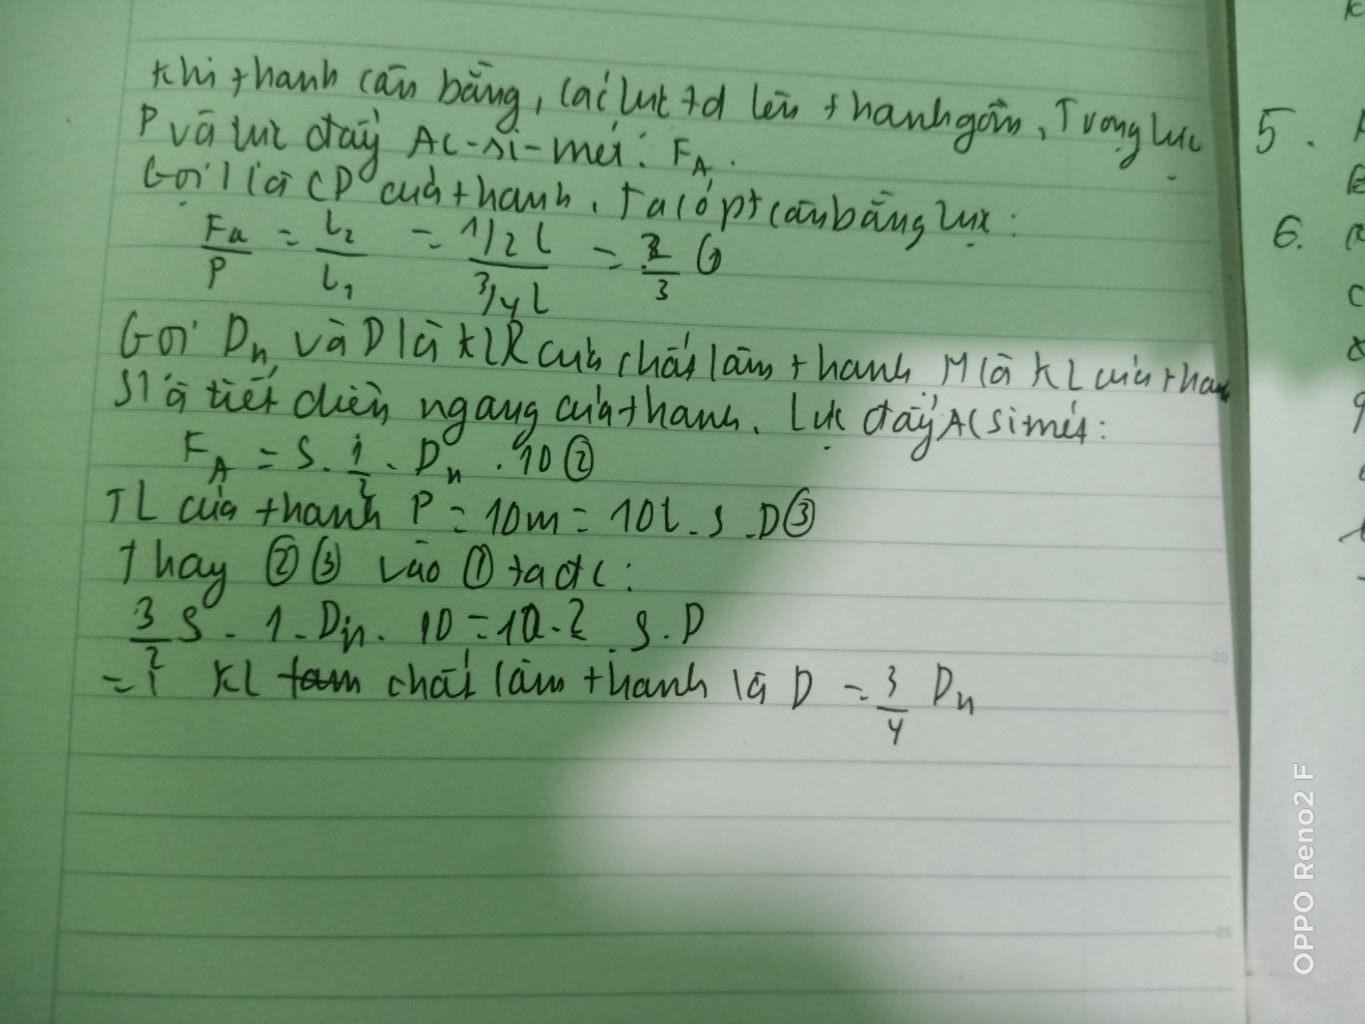 Khi thanh cân bằng, các lực td lên thanh gồm, Trọng lực
P và lực đẩy Ac-si-mét: FA.
Gọi l là CD của thanh. Ta có pt cân bằng lực:
Fa/P = l2/l1 = 1/2 l / 3/4 l = 2/3 ①
Gọi Dn và D là KLR của chất làm thanh M là KL của thanh
S là tiết diện ngang của thanh. Lực đẩy Acsimét:
FA = S. 1/2 . Dn . 10 ②
TL của thanh P = 10m = 10l. S .D ③
Thay ② ③ vào ① ta đc:
3/2 S. 1. Dn. 10 = 10. 2 S. D
=> KL chất làm thanh là D = 3/4 Dn
5.
6.
OPPO Reno2 F